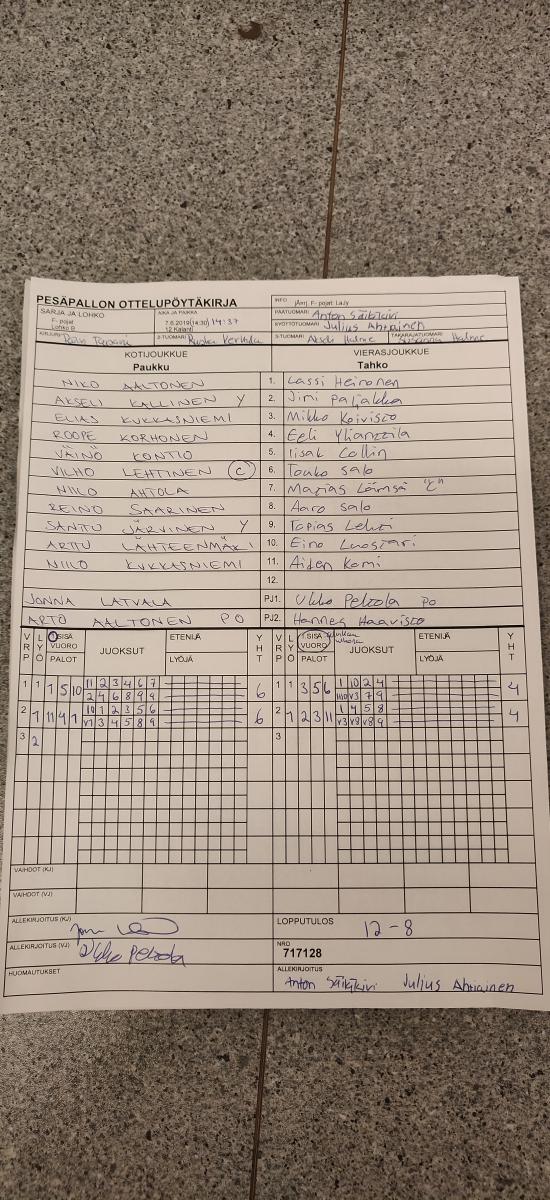 PESÄPALLON OTTELUPÖYTÄKIRJA
INFO
jAnj. F- pojat LaJy
SARJA JA LOHKO
F- pojat
Lohko B
AIKA JA PAIKKA
7.6.2019 (14:30) 14:37
12 Kalanti
PÄÄTUOMARI Anton Säikkivi
SYÖTTÖTUOMARI Julius Ahtiainen
KIRJURI
2-TUOMARI
3-TUOMARI Akseli Halme
TAKARAJATUOMARI Susanna Halme
KOTIJOUKKUE
Paukku
VIERASJOUKKUE
Tahko
NIKO AALTONEN 1. Lassi Heinonen
AKSELI KALLINEN Y 2. Jimi Paljakka
ELIAS KUKKASNIEMI 3. Mikko Koivisto
ROOPE KORHONEN 4. Eeli Yliannttila
VÄINÖ KONTIO 5. Iisak Collin
VILHO LEHTINEN C 6. Touko Salo
NIILO AHTOLA 7. Matias Lämsä "C"
REINO SAARINEN 8. Aaro Salo
SANTTU JÄRVINEN Y 9. Topias Lehti
ARTTU LÄHTEENMÄKI 10. Eino Luostari
NIILO KUKKASNIEMI 11. Aiden Komi
12.
JONNA LATVALA PJ1. Ukko Peltola PO
ARTO AALTONEN PO PJ2. Hannes Haavisto
VRP LYÖ 1 SISÄ VUORO PALOT JUOKSUT ETENIJÄ LYÖJÄ YHT
VRP LYÖ 1.SISÄ VUORO PALOT JUOKSUT ETENIJÄ LYÖJÄ YHT
1 1 1 5 10 11 2 3 4 6 7 6 1 1 3 5 6 1 10 2 4 4
2 4 6 8 9 9 V3 7 9
2 1 11 4 1 10 1 2 3 5 6 6 2 1 2 3 11 1 4 5 8 4
V1 3 4 5 8 9 V3 V8 V8 9
3 2 3
VAIHDOT (KJ)
VAIHDOT (VJ)
ALLEKIRJOITUS (KJ)
LOPPUTULOS 12 - 8
ALLEKIRJOITUS (VJ) Ukko Peltola
NRO
717128
HUOMAUTUKSET
ALLEKIRJOITUS
Anton Säikkivi Julius Ahtiainen